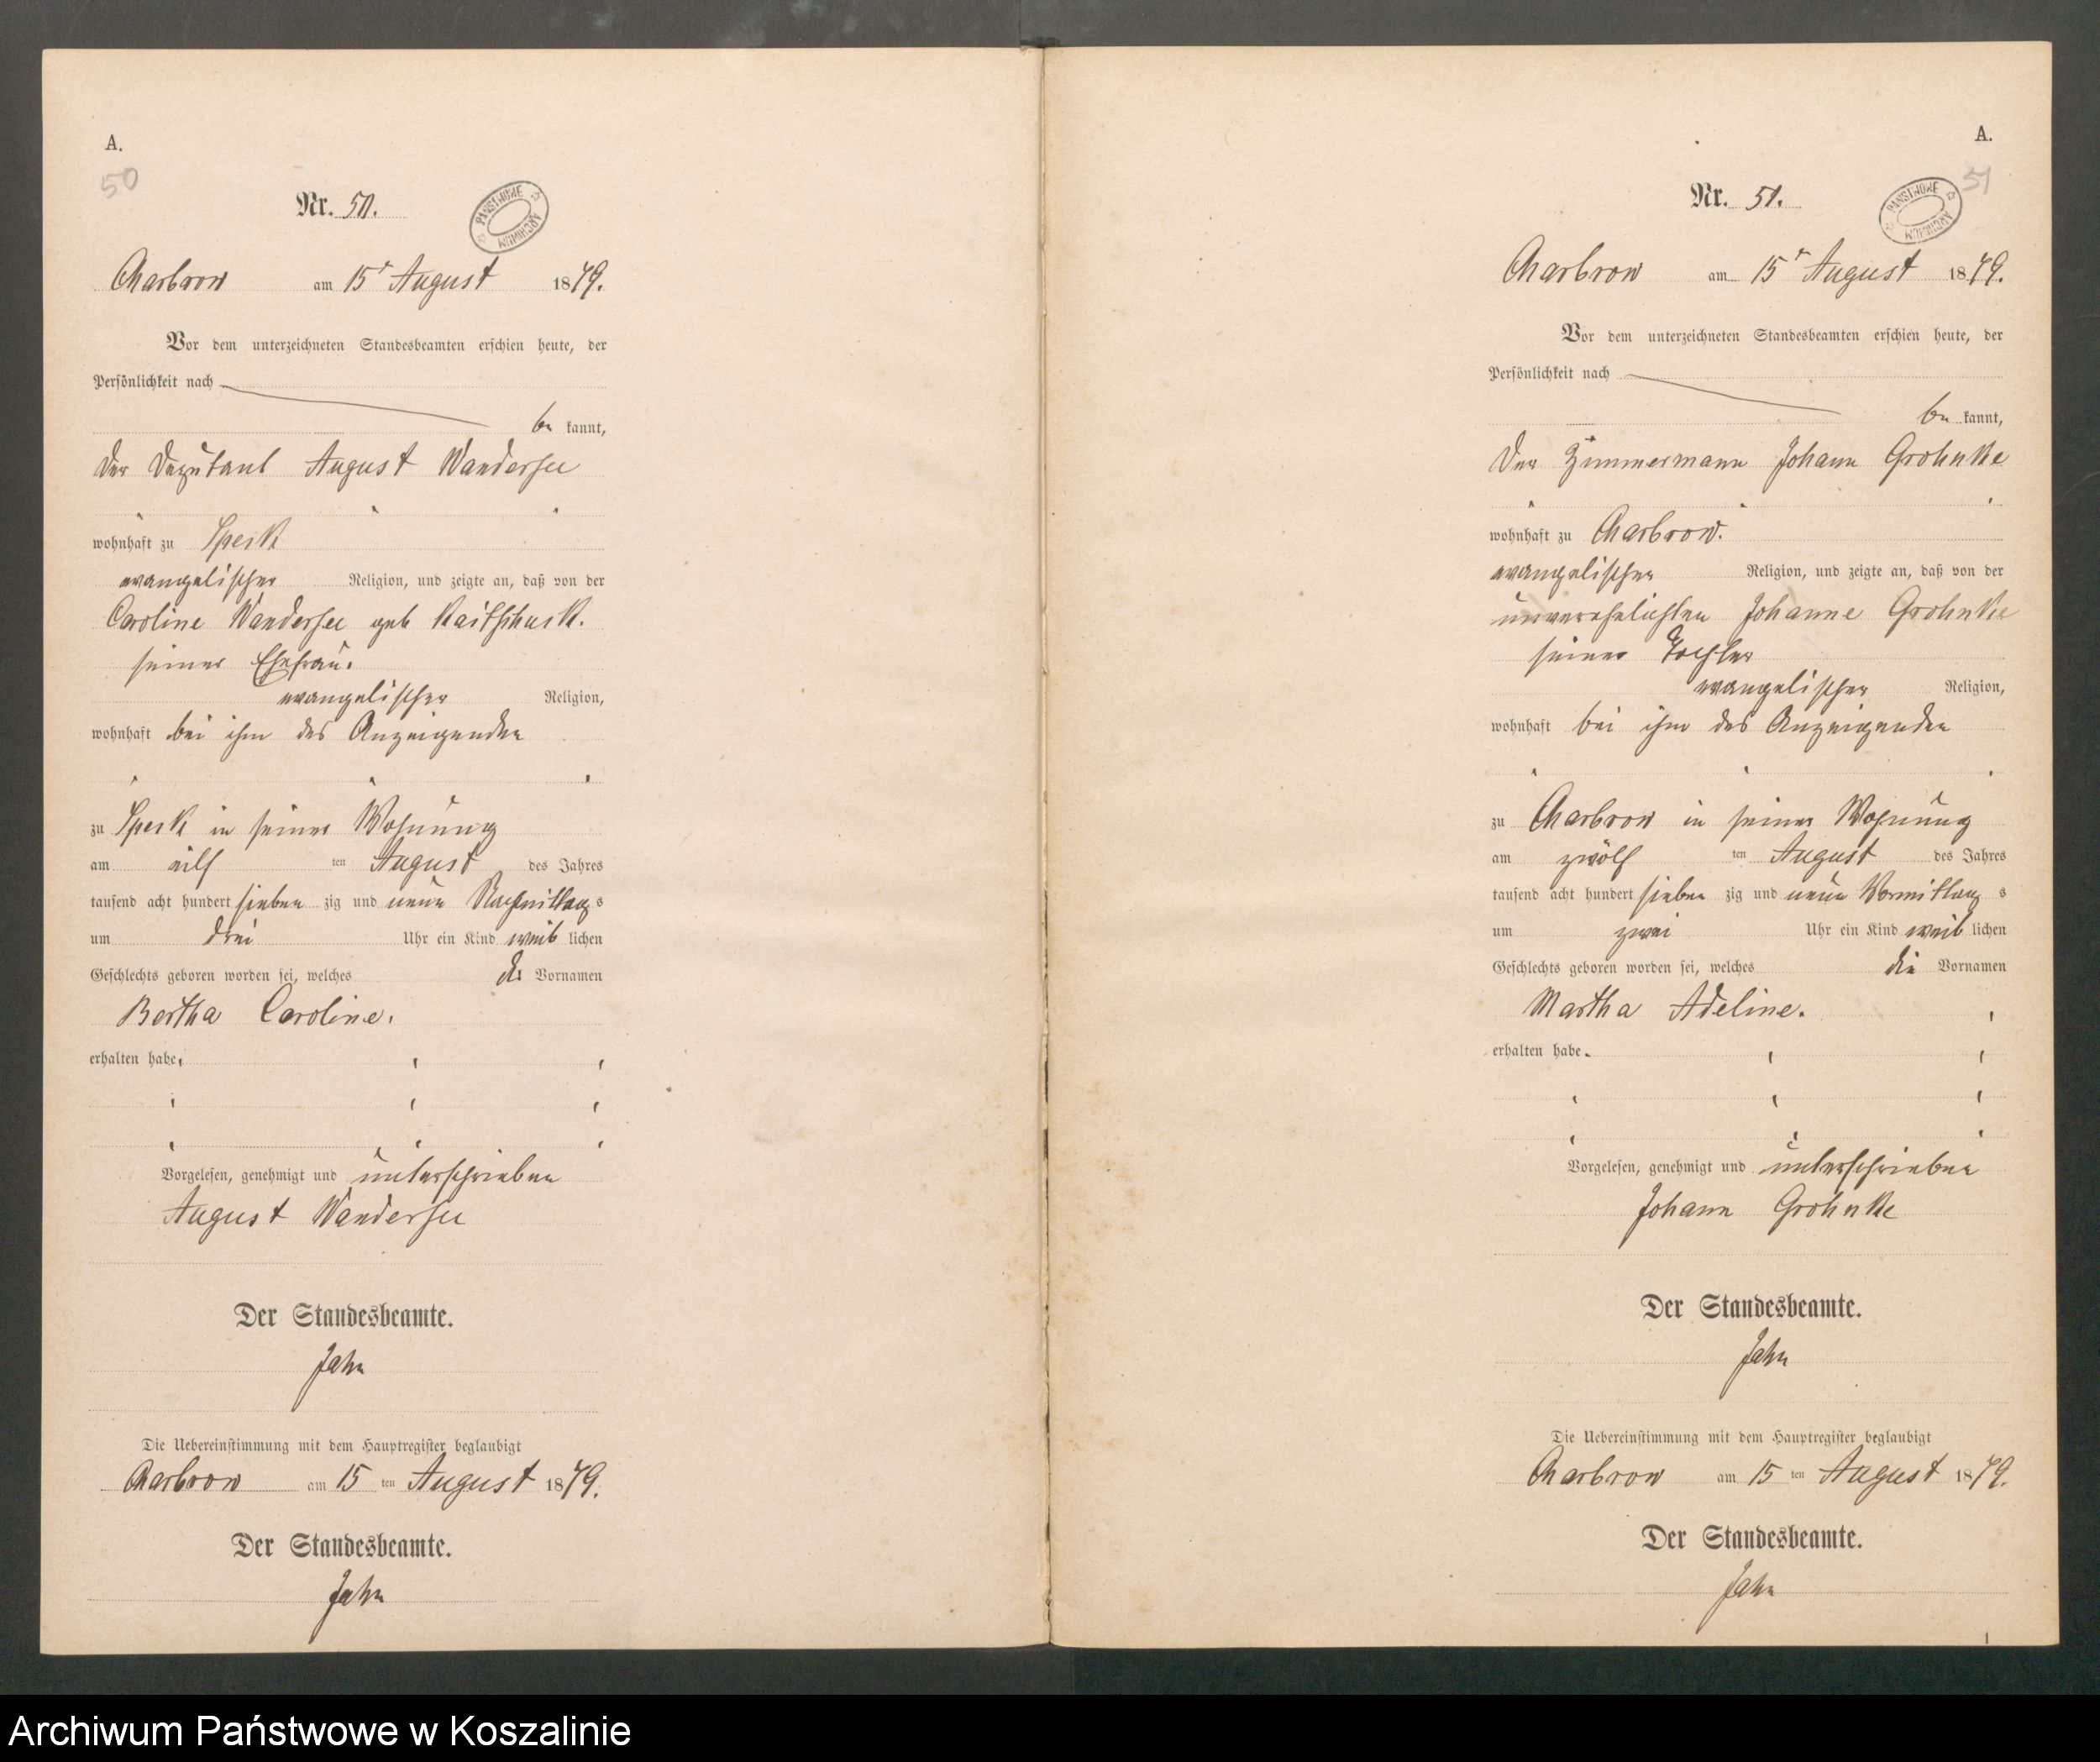 A.
50
Nr. 50.
PANSTWOWE ARCHIWUM
Charbrow am 15t August 1879.
Vor dem unterzeichneten Standesbeamten erschien heute, der
Persönlichkeit nach
be kannt,
der Deputant August Wandersee
wohnhaft zu Speck
evangelischer Religion, und zeigte an, daß von der
Caroline Wandersee geb
seiner Ehefrau.
evangelischer Religion,
wohnhaft bei ihm des Anzeigenden
zu Speck in seiner Wohnung
am eilf ten August des Jahres
tausend acht hundert sieben zig und neun Nachmittag s
um drei Uhr ein Kind weib lichen
Geschlechts geboren worden sei, welches die Vornamen
Bertha Caroline.
erhalten habe.
Vorgelesen, genehmigt und unterschrieben
August Wandersee
Der Standesbeamte.
Jahn
Die Uebereinstimmung mit dem Hauptregister beglaubigt
Charbrow am 15 ten August 1879.
Der Standesbeamte.
Jahn
A.
51
Nr. 51.
PANSTWOWE ARCHIWUM
Charbrow am 15t August 1879.
Vor dem unterzeichneten Standesbeamten erschien heute, der
Persönlichkeit nach
be kannt,
der Zimmermann Johann Grohnke
wohnhaft zu Charbrow.
evangelischer Religion, und zeigte an, daß von der
unverehelichten Johanne Grohnke
seiner Tochter
evangelischer Religion,
wohnhaft bei ihm des Anzeigenden
zu Charbrow in seiner Wohnung
am zwölf ten August des Jahres
tausend acht hundert sieben zig und neun Vormittag s
um zwei Uhr ein Kind weib lichen
Geschlechts geboren worden sei, welches die Vornamen
Martha Adeline.
erhalten habe.
Vorgelesen, genehmigt und unterschrieben
Johann Grohnke
Der Standesbeamte.
Jahn
Die Uebereinstimmung mit dem Hauptregister beglaubigt
Charbrow am 15 ten August 1879.
Der Standesbeamte.
Jahn
Archiwum Państwowe w Koszalinie